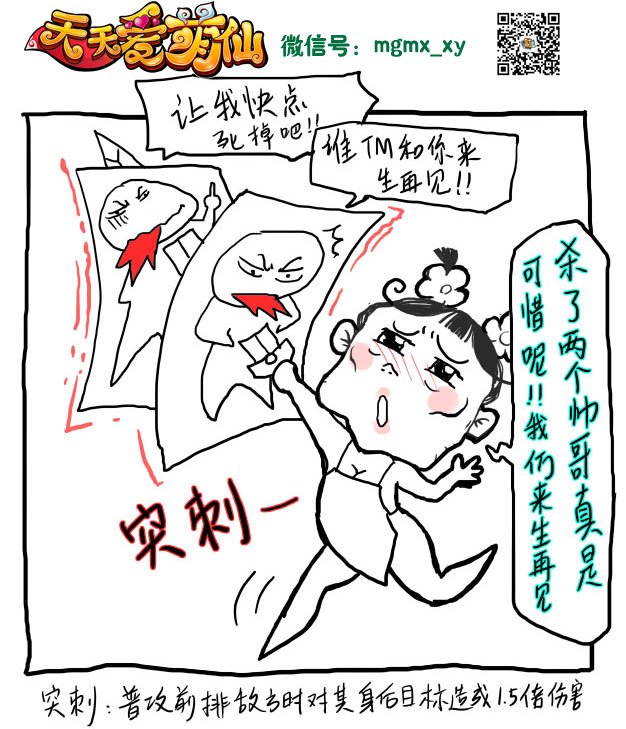 天天爱萌仙
微信号：mgmx_xy
让我快点
死掉吧!!
谁TM和你来
生再见!!
杀了两个帅哥真是
可惜呢!!我们来生再见
突刺一
突刺：普攻前排敌方时对其身后目标造成1.5倍伤害